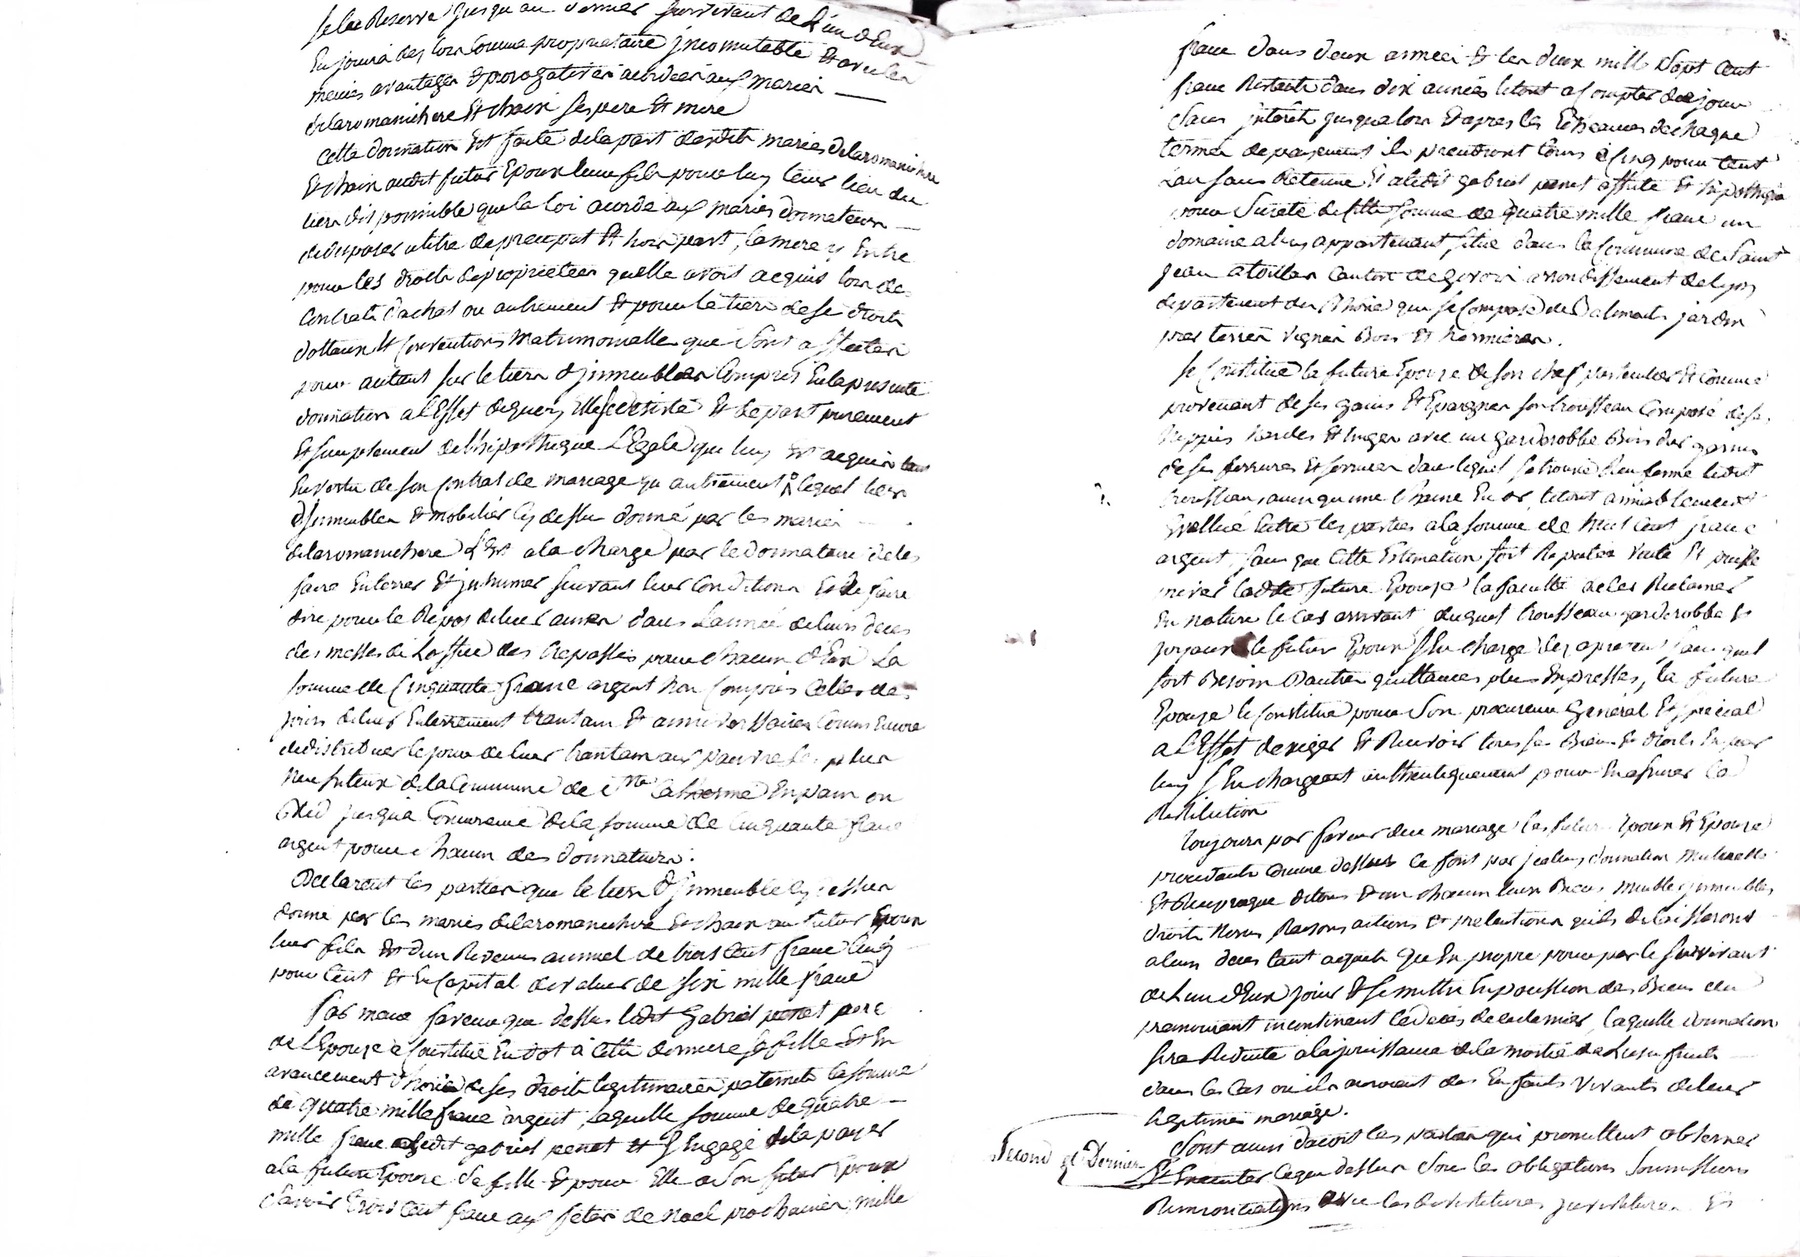 se la Reserve jusqu'au dernier survivant de L'un d'Eux
En jouira des lors comme proprietaire jncomutable Et avec les
mesmes avantages Et prerogatives accordées aux mariés
delaromanichere Et chain ses pere Et mere
Cette donnation Est faite dela part desdits mariés delaromanichere
Et chain audit futur Epoux leur fils pour luy tenir lieu du
tiers disponnible que la loi acorde aux mariés donnateurs
de disposer atitre depreciput Et hors part, la mere y Entre
pour les droits depropriettés quelle avoit acquis lors de
Contrats d'achat ou autrement Et pour le tiers de se droits
dottaux Et Conventions Matrimonialle que Sont affectés
pour autant sur le tiers d'jmmeubles Compris En la presente
donnation a l'Effet dequoy Elle se desiste Et depart purement
Et simplement de l'hipotheque Légale qui luy Est acquise tant
En vertu de son Contrat de mariage qu autrement lequel tiers
D'jmmeubles Et mobilier cy dessus donné par les mariés
delaromanichere Est ala charge par le donnataire de les
faire Enterrer Et jnhumer suivant leur Condition Et de faire
dire pour le Repos de leurs ames dans Lannée de leurs deces
des messes de Loffice des trepassés pour chacun d'Eux La
somme de Cinquante franc argent non Compris Celles des
jours de leur Enterrement trantain Et anniversaires Comm Encore
dedistribuer le jour de leur trantain aux pauvres les plus
necessiteux dela Commune de Ste Catherine En pain ou
bled jusqu'a Concurence dela somme de cinquante franc
argent pour chacun des donnateurs.
Declarent les parties que le tiers d'jmmeuble cy dessus
donné par les mariés delaromanichere Et chain au futur Epoux
leur fils Est d'un Revenu annuel de trois Cent franc cinq
pour Cent Et En Capital de valeur de six mille franc
Par meme faveur que dessus ledit Gabriel penet pere
de l'Epouse a Constitué En dot à Cette derniere sa fille Et En
avancement d'hoirie de ses droits legitimaires paternels la somme
de quatre mille franc argent, laquelle somme de quatre
mille franc ledit gabriel penet Et s'Engage dela payer
ala future Epouse sa fille Et pour Elle a Son futur Epoux
Savoir trois Cent franc aux fetes de noel prochaines, mille
franc dans deux années Et les deux mille Sept Cent
franc Restants dans dix années letout a Compter dece jour
Sans jnterêts jusqualors Et apres les Echeances dechaque
termes depayement ils prendront Cours a cinq pour Cent
L'an sans Retenue Et aledit gabriel penet affecté Et hipothequé
pour Sureté de cette somme de quatre mille franc un
domaine a luy appartenant, situé dans la Commune de Saint
Jean atoillas Canton de givors arrondissement de lyon
departement du Rhône qui se Compose de Batiments jardin
pres terres vignes Bois Et hermieres.
Se Constitue la future Epouse de son chef particulier Et Comme
provenant de ses gains Et Epargnes son trousseau Composé de ses
nippes hardes Et linges avec un garderobbe Bois dur garnis
de ses ferrures Et serrures dans lequel se trouve Renfermé ledit
trousseau, ainsi qu'une chaine En or, letout amiablement
Evallué Entre les parties ala somme de huit Cent franc
argent, sans que Cette Estimation soit Reputée vente Et puisse
priver ladite future Epouse la faculté de les Reclamer
En nature le Cas arrivant, duquel trousseau garderobbe Et
joyaux le futur Epoux s'En charge des apresent, sans quil
soit Besoin dautre quittances plus Expresses, la future
Epouse le Constitue pour Son procureur General Et special
a l'Effet d'exiger Et Recevoir tous ses Biens Et droits En par
luy s'En chargeant authentiquement pour En assurer la
Restitution
Toujours par faveur dece mariage les futur Epoux Et Epouse
procedants Comme dessus se font par jcelles donnation Mutuelle
Et Reciproque detous Et un chacun leurs Biens Meubles jmmeubles,
droits Noms Raisons actions Et pretentions quils delaisseront
aleur deces tant acquets Que En propre pour par le Survivant
de L'un d'Eux jouir Et se mettre En possession des Biens du
premourant incontinent le deces de ce dernier, laquelle donnation
sera Reduite alajouissance dela moitié de L'usufruit
dans le Cas ou ils auroient des Enfants vivants deleur
legitime mariage.
Sont ainsi dacord les parties qui promettent observer
Second et Dernier
Et Executer ceque dessus Sous les obligations soumissions
Renonciations avec les clauses